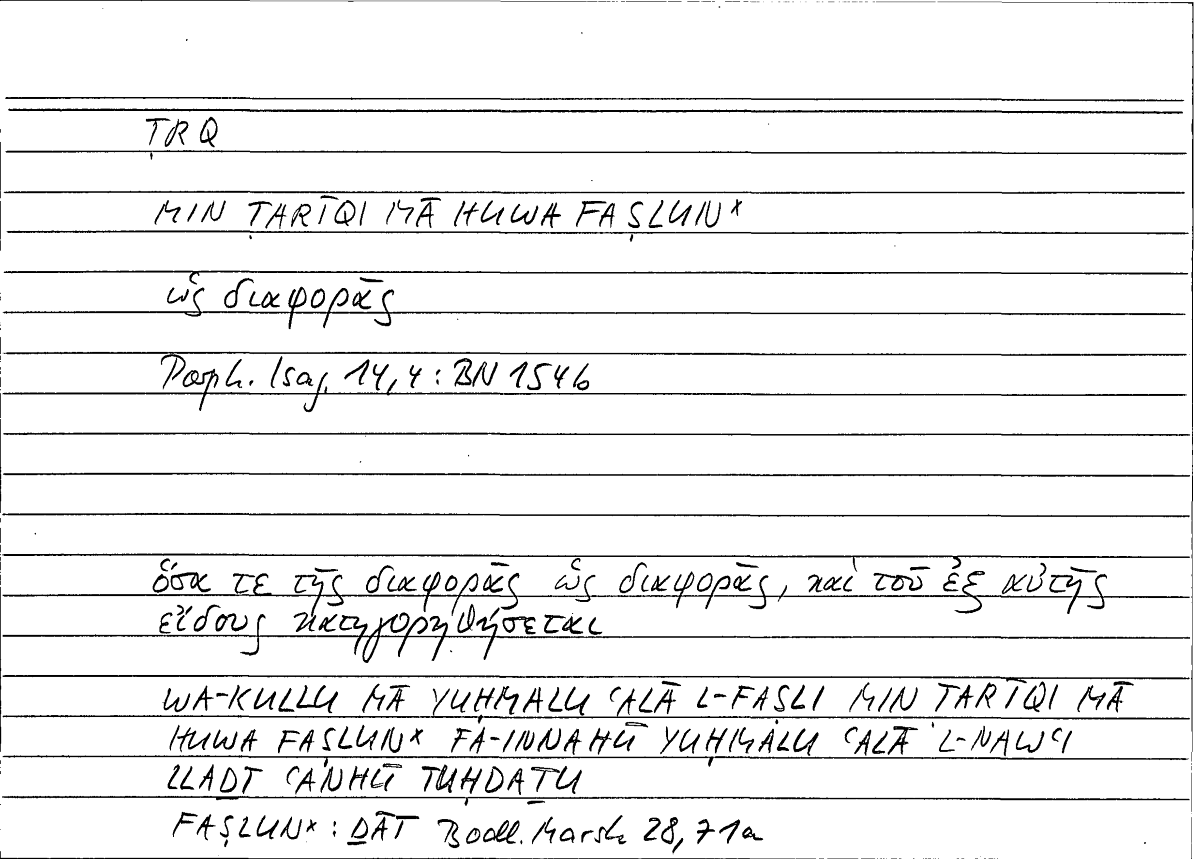 ṬRQ
MIN ṬARĪQI MĀ HUWA FAṢLUNˣ
ὡς διαφορᾶς
Porph. Isag. 14,4 : BN 154b
ὅσα τε τῆς διαφορᾶς ὡς διαφορᾶς, καὶ τοῦ ἐξ αὐτῆς
εἴδους κατηγορηθήσεται
WA-KULLU MĀ YUḤMALU ʿALĀ L-FAṢLI MIN TARĪQI MĀ
HUWA FAṢLUNˣ FA-INNAHŪ YUḤMALU ʿALĀ L-NAWʿI
LLAḎĪ ʿANHŪ TUḤDAṮU
FAṢLUNˣ : ḎĀT Bodl. Marsh 28,71a